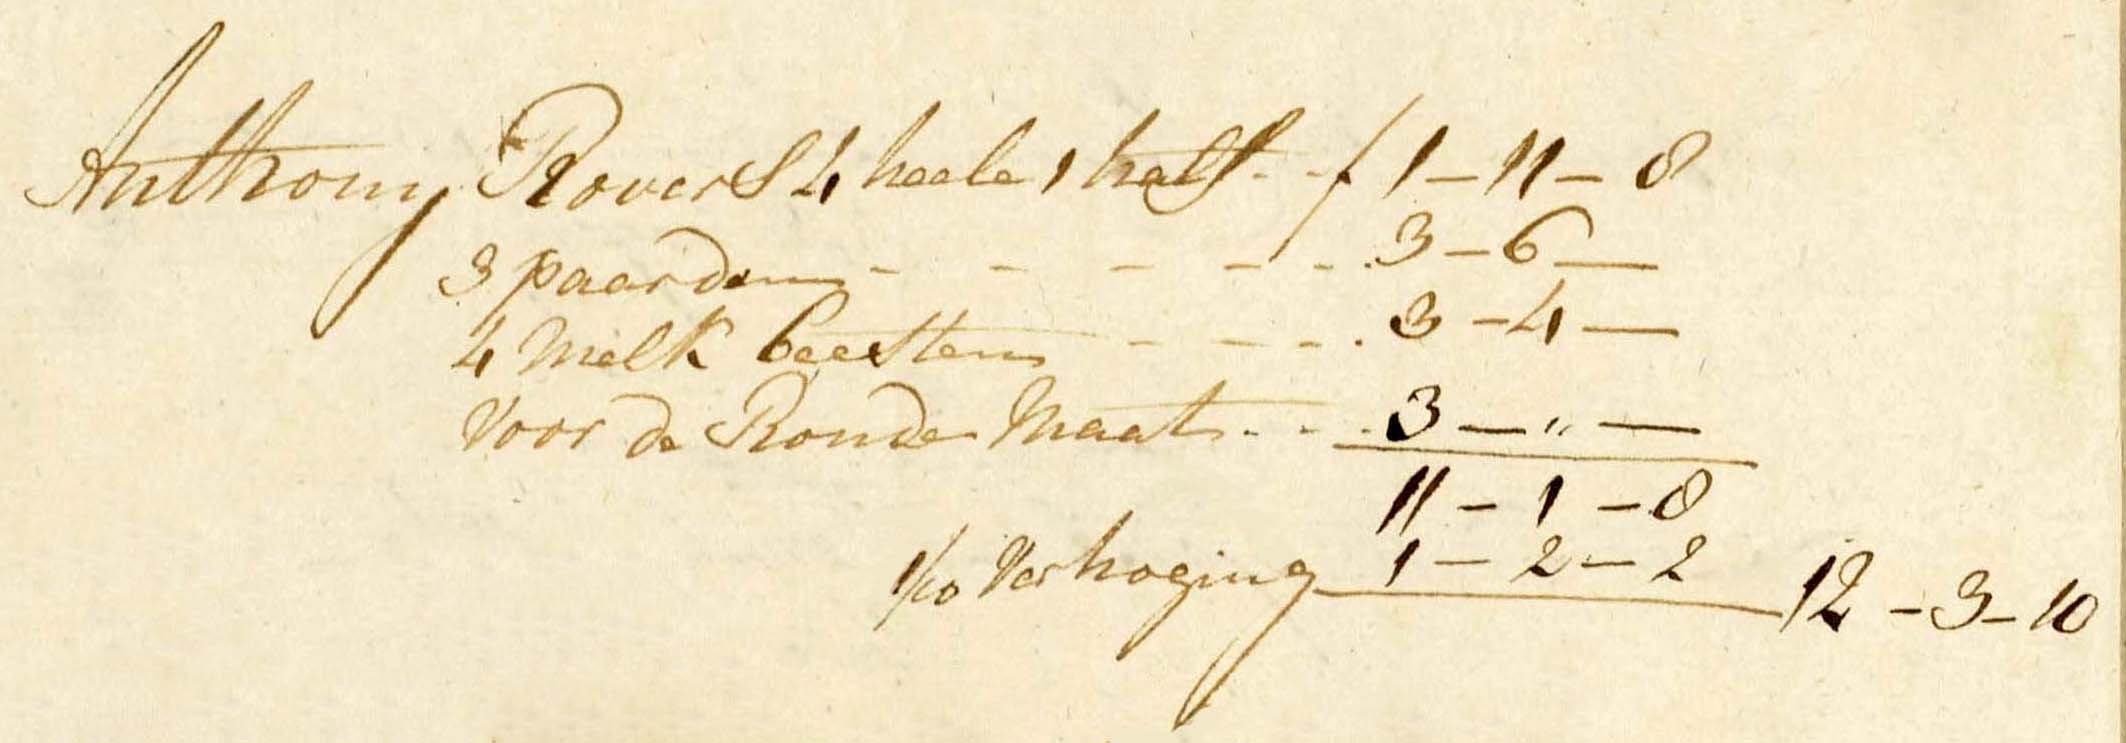 Anthony Rovers 4 heele 1 half - - ƒ 1 - 11 - 8
3 paarden - - - - - - . 3 - 6 —
4 Melk beesten - - - - . 3 - 4 —
Voor de Ronde Maat - - - . 3 — „ —
11 - 1 - 8
1/10 Verhoging 1 - 2 - 2 12 - 3 - 10